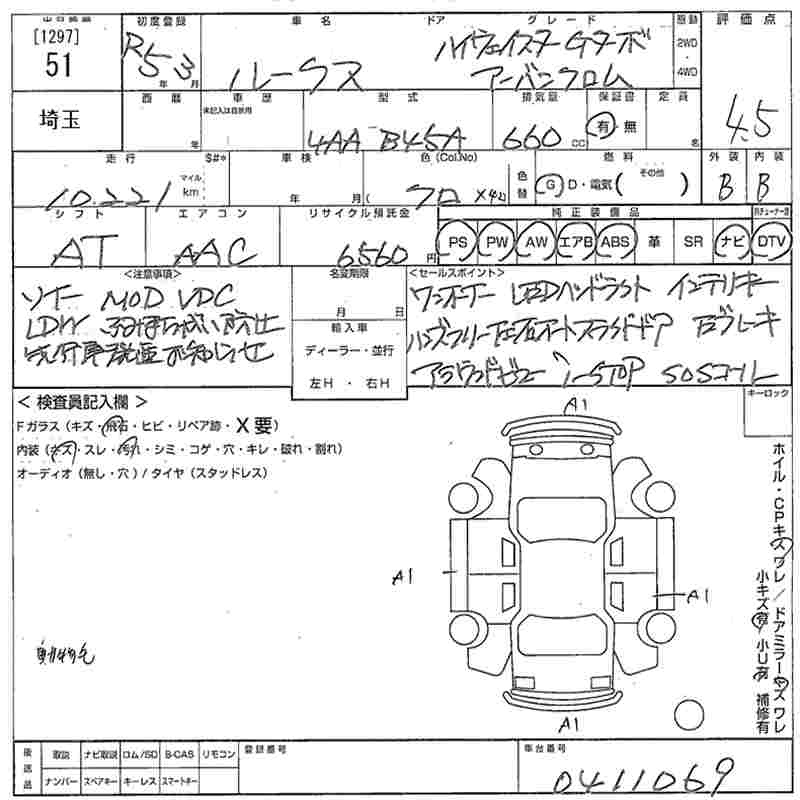 [1297]
51
埼玉
初度登録
R5 3
年 月
車名 ドア グレード
ルークス
ハイウェイスターGターボ
アーバンクロム
駆動
2WD
・
4WD
評価点
4.5
西暦
年
車歴
未記入は自家用
型式
4AA B45A
排気量
660 cc
保証書
有・無
定員
名
走行 S#*
10.221
マイル
km
車検
年 月
色(Col.No)
クロ ×42
色替
燃料
G D・電気( その他 )
外装
B
内装
B
シフト
AT
エアコン
AAC
リサイクル預託金
6560円
純正装備品
PS PW AW エアB ABS 革 SR ナビ DTV
<注意事項>
ソナー MOD VDC
LDW ふみまちがい防止
先行車発進お知らせ
名変期限
月 日
輸入車
ディーラー・並行
左H・右H
<セールスポイント>
ワンオーナー LEDヘッドライト インテリキー
ハンズフリー左右オートスライドドア エブレーキ
アラウンドビュー I-STOP SOSコール
<検査員記入欄>
Fガラス(キズ・飛石・ヒビ・リペア跡・X要)
内装(キズ・スレ・汚れ・シミ・コゲ・穴・キレ・破れ・割れ)
オーディオ(無し・穴)/タイヤ(スタッドレス)
キーロック
A1
A1
A1
A1
ホイル・CPキズワレ/ドアミラーキズワレ
小キズ有 小U有 補修有
後送品
取説 ナビ取説 ロム/ISO B-CAS リモコン
ナンバー スペアキー キーレス スマートキー
登録番号
車台番号
0411069